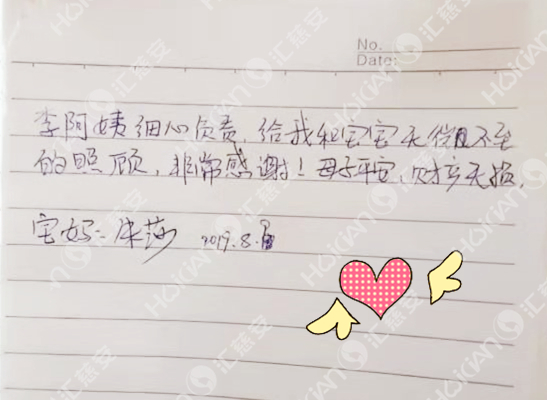 No.
Date:
李阿姨细心负责,给我和宝宝无微不至
的照顾,非常感谢!母子平安,财产无损,
宝妈:朱莎 2019.8.
HOIKIAN 汇慈安